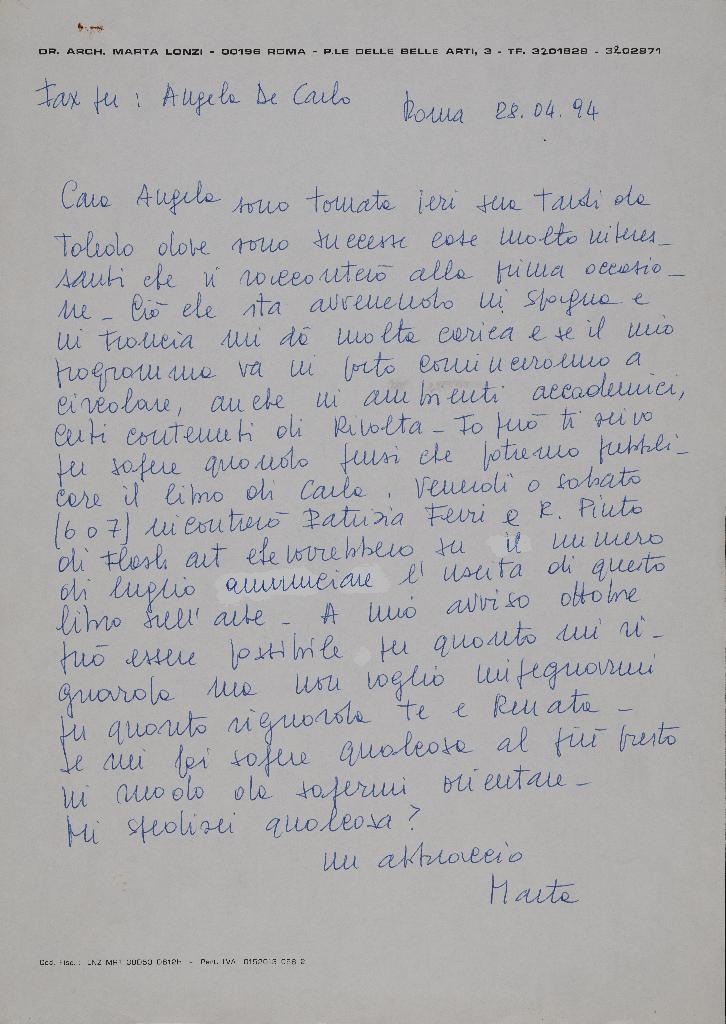 DR. ARCH. MARTA LONZI - 00196 ROMA - P.LE DELLE BELLE ARTI, 3 - TF. 3201828 - 3202871
Fax per : Angela De Carlo
Roma 28.04.94
Cara Angela sono tornata ieri sera tardi da
Toledo dove sono successe cose molto interes_
santi che vi racconterò alla prima occasio_
ne _ Ciò che sta avvenendo in Spagna e
in Francia mi dà molta carica e se il mio
programma va in porto cominceranno a
circolare, anche in ambienti accademici,
certi contenuti di Rivolta _ Io però ti scrivo
per sapere quando pensi che potremo pubbli_
care il libro di Carla. Venerdì o sabato
(6 o 7) incontrerò Patrizia Ferri e R. Pinto
di Flash art che vorrebbero su il numero
di luglio annunciare l'uscita di questo
libro sull'arte _ A mio avviso ottobre
può essere possibile per quanto mi ri_
guarda ma non voglio impegnarmi
per quanto riguarda te e Renata _
Se mi fai sapere qualcosa al più presto
in modo da sapermi orientare _
Mi spedisci qualcosa?
un abbraccio
Marta
Cod. Fisc. : LNZ MRT 38D53 D612H - Part. IVA 0152013 058 2